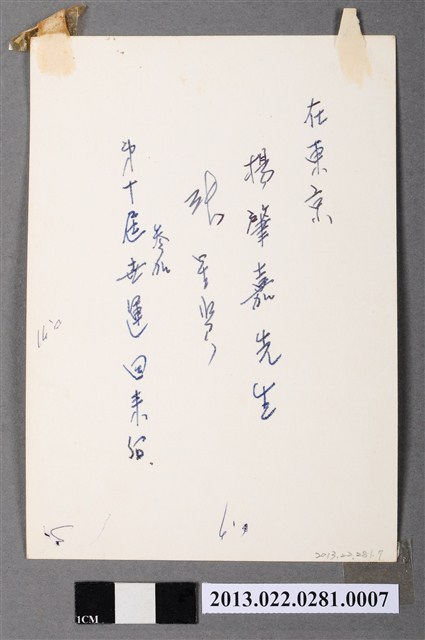 在東京
楊肇嘉先生
張星賢
參加
第十屆世運回来
2013.22.281.7
1CM
2013.022.0281.0007